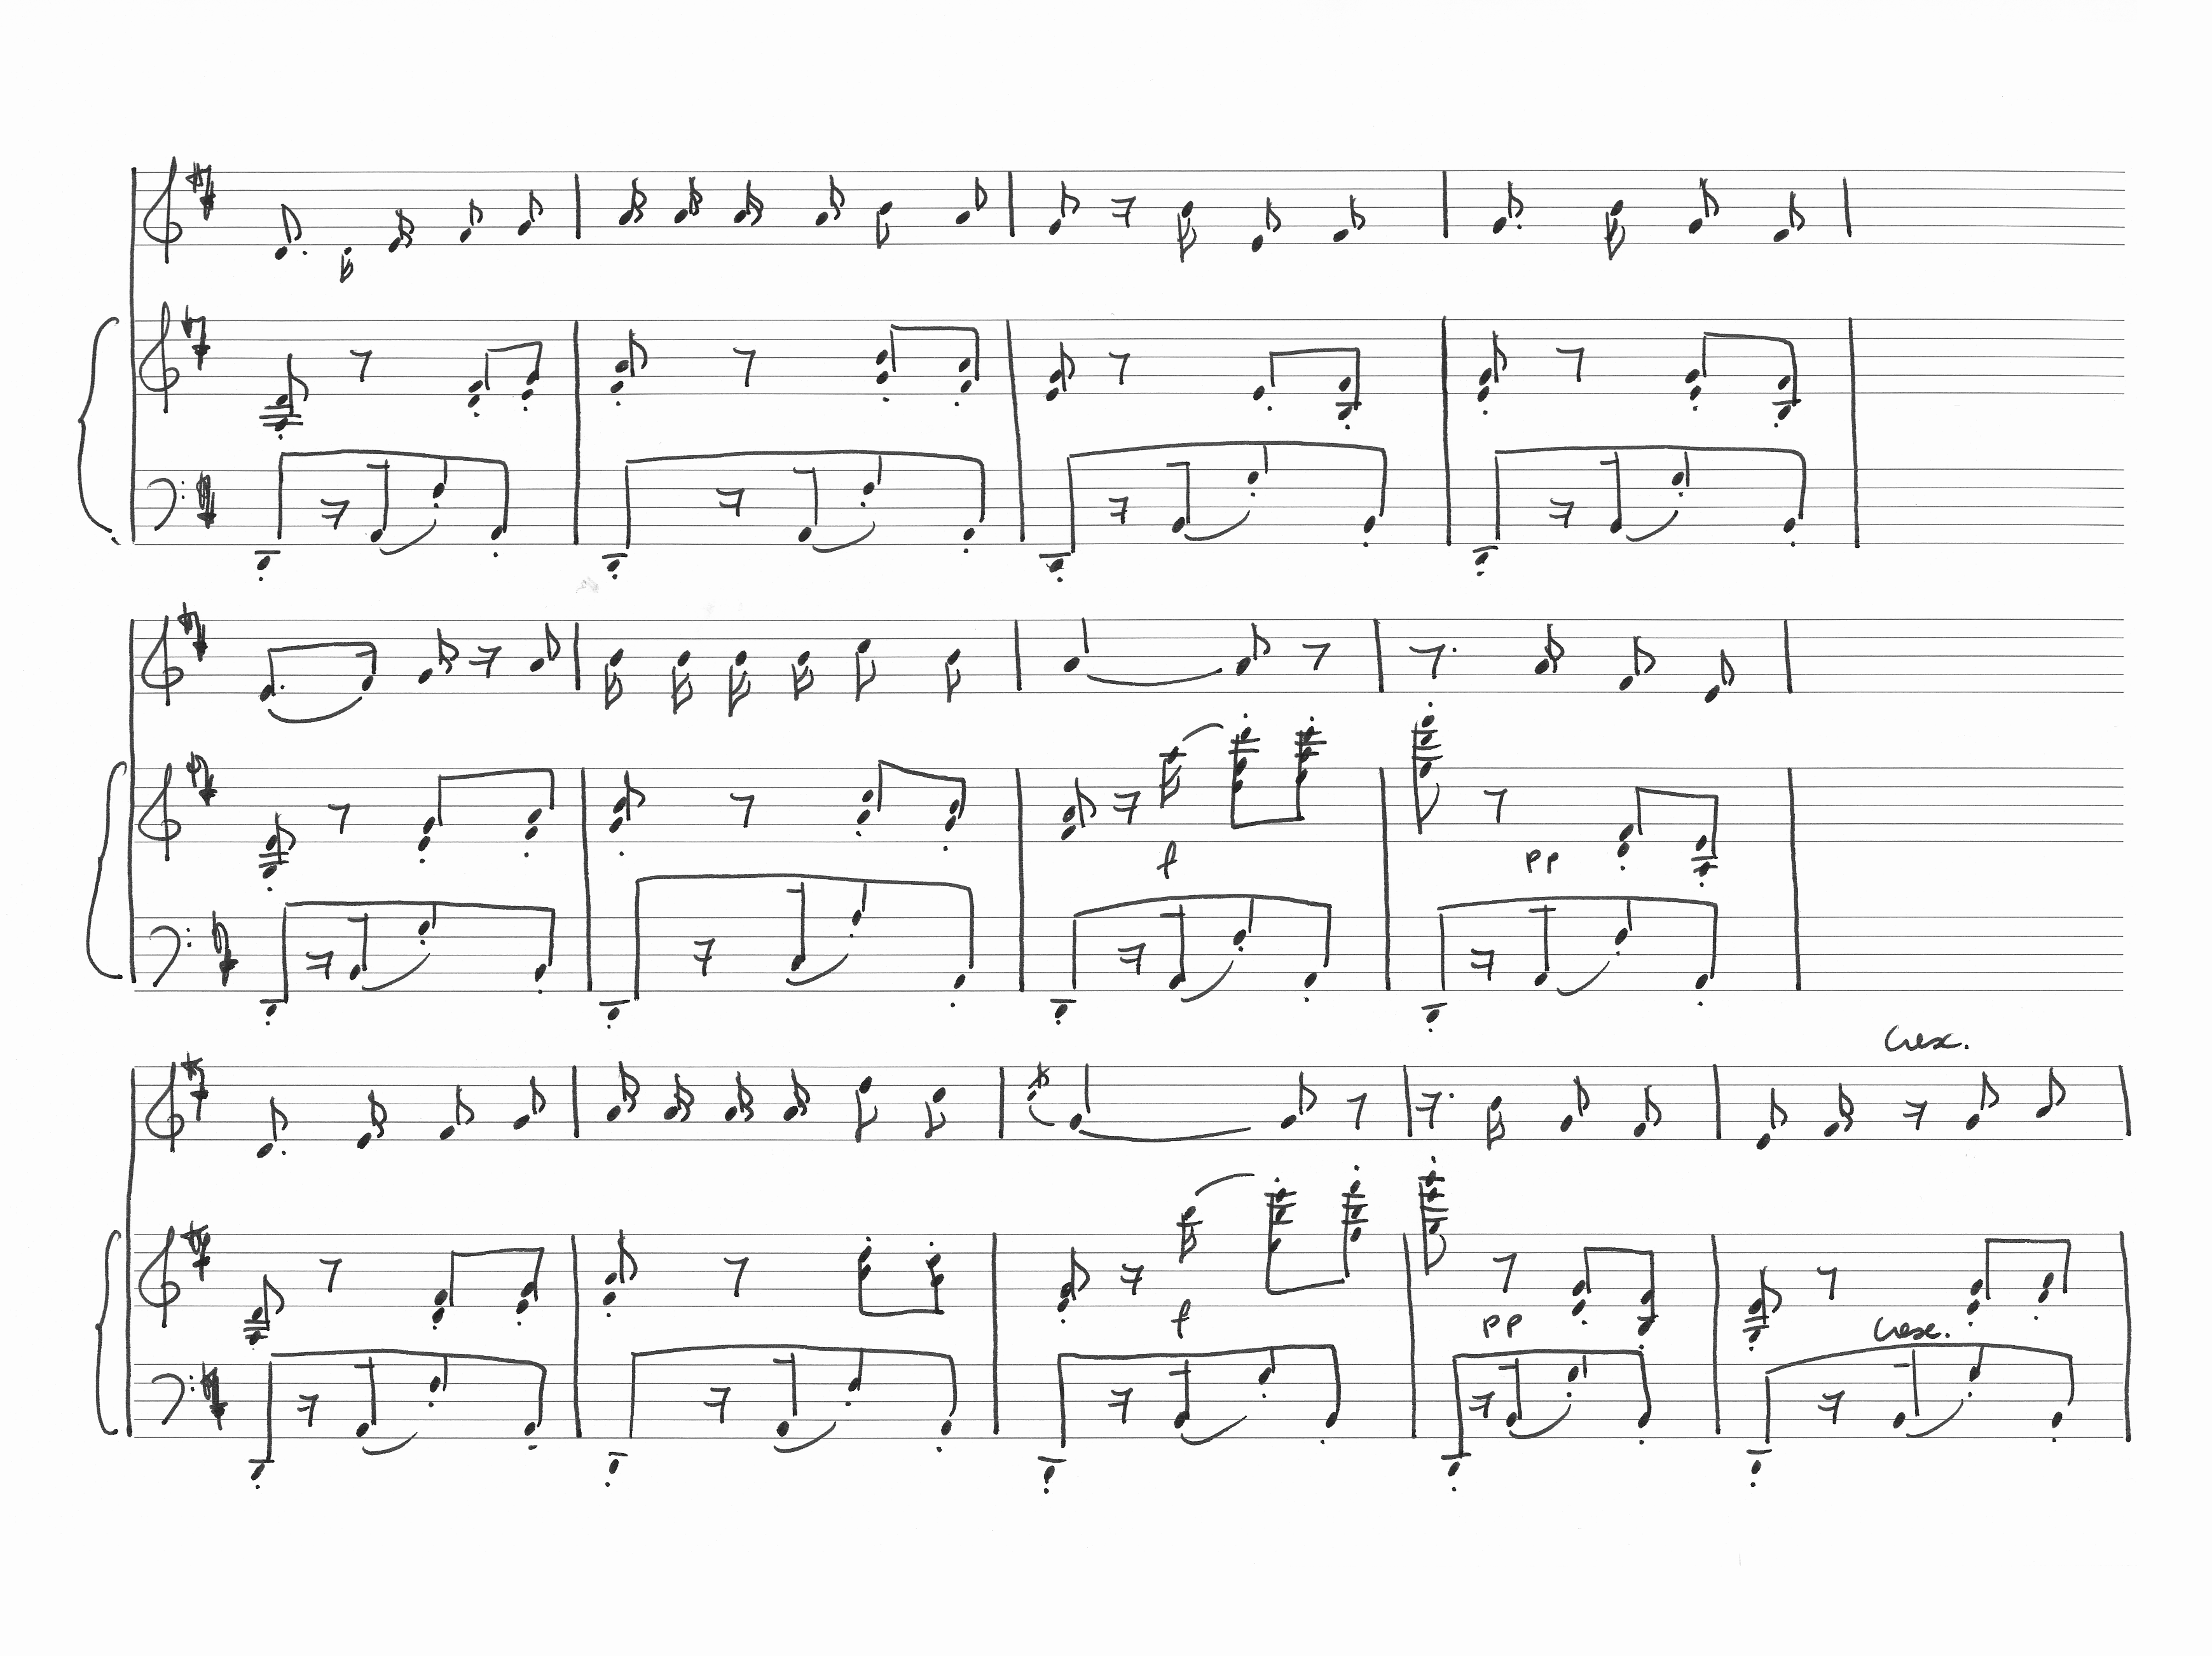 f
pp
Cresc.
f
pp
Cresc.